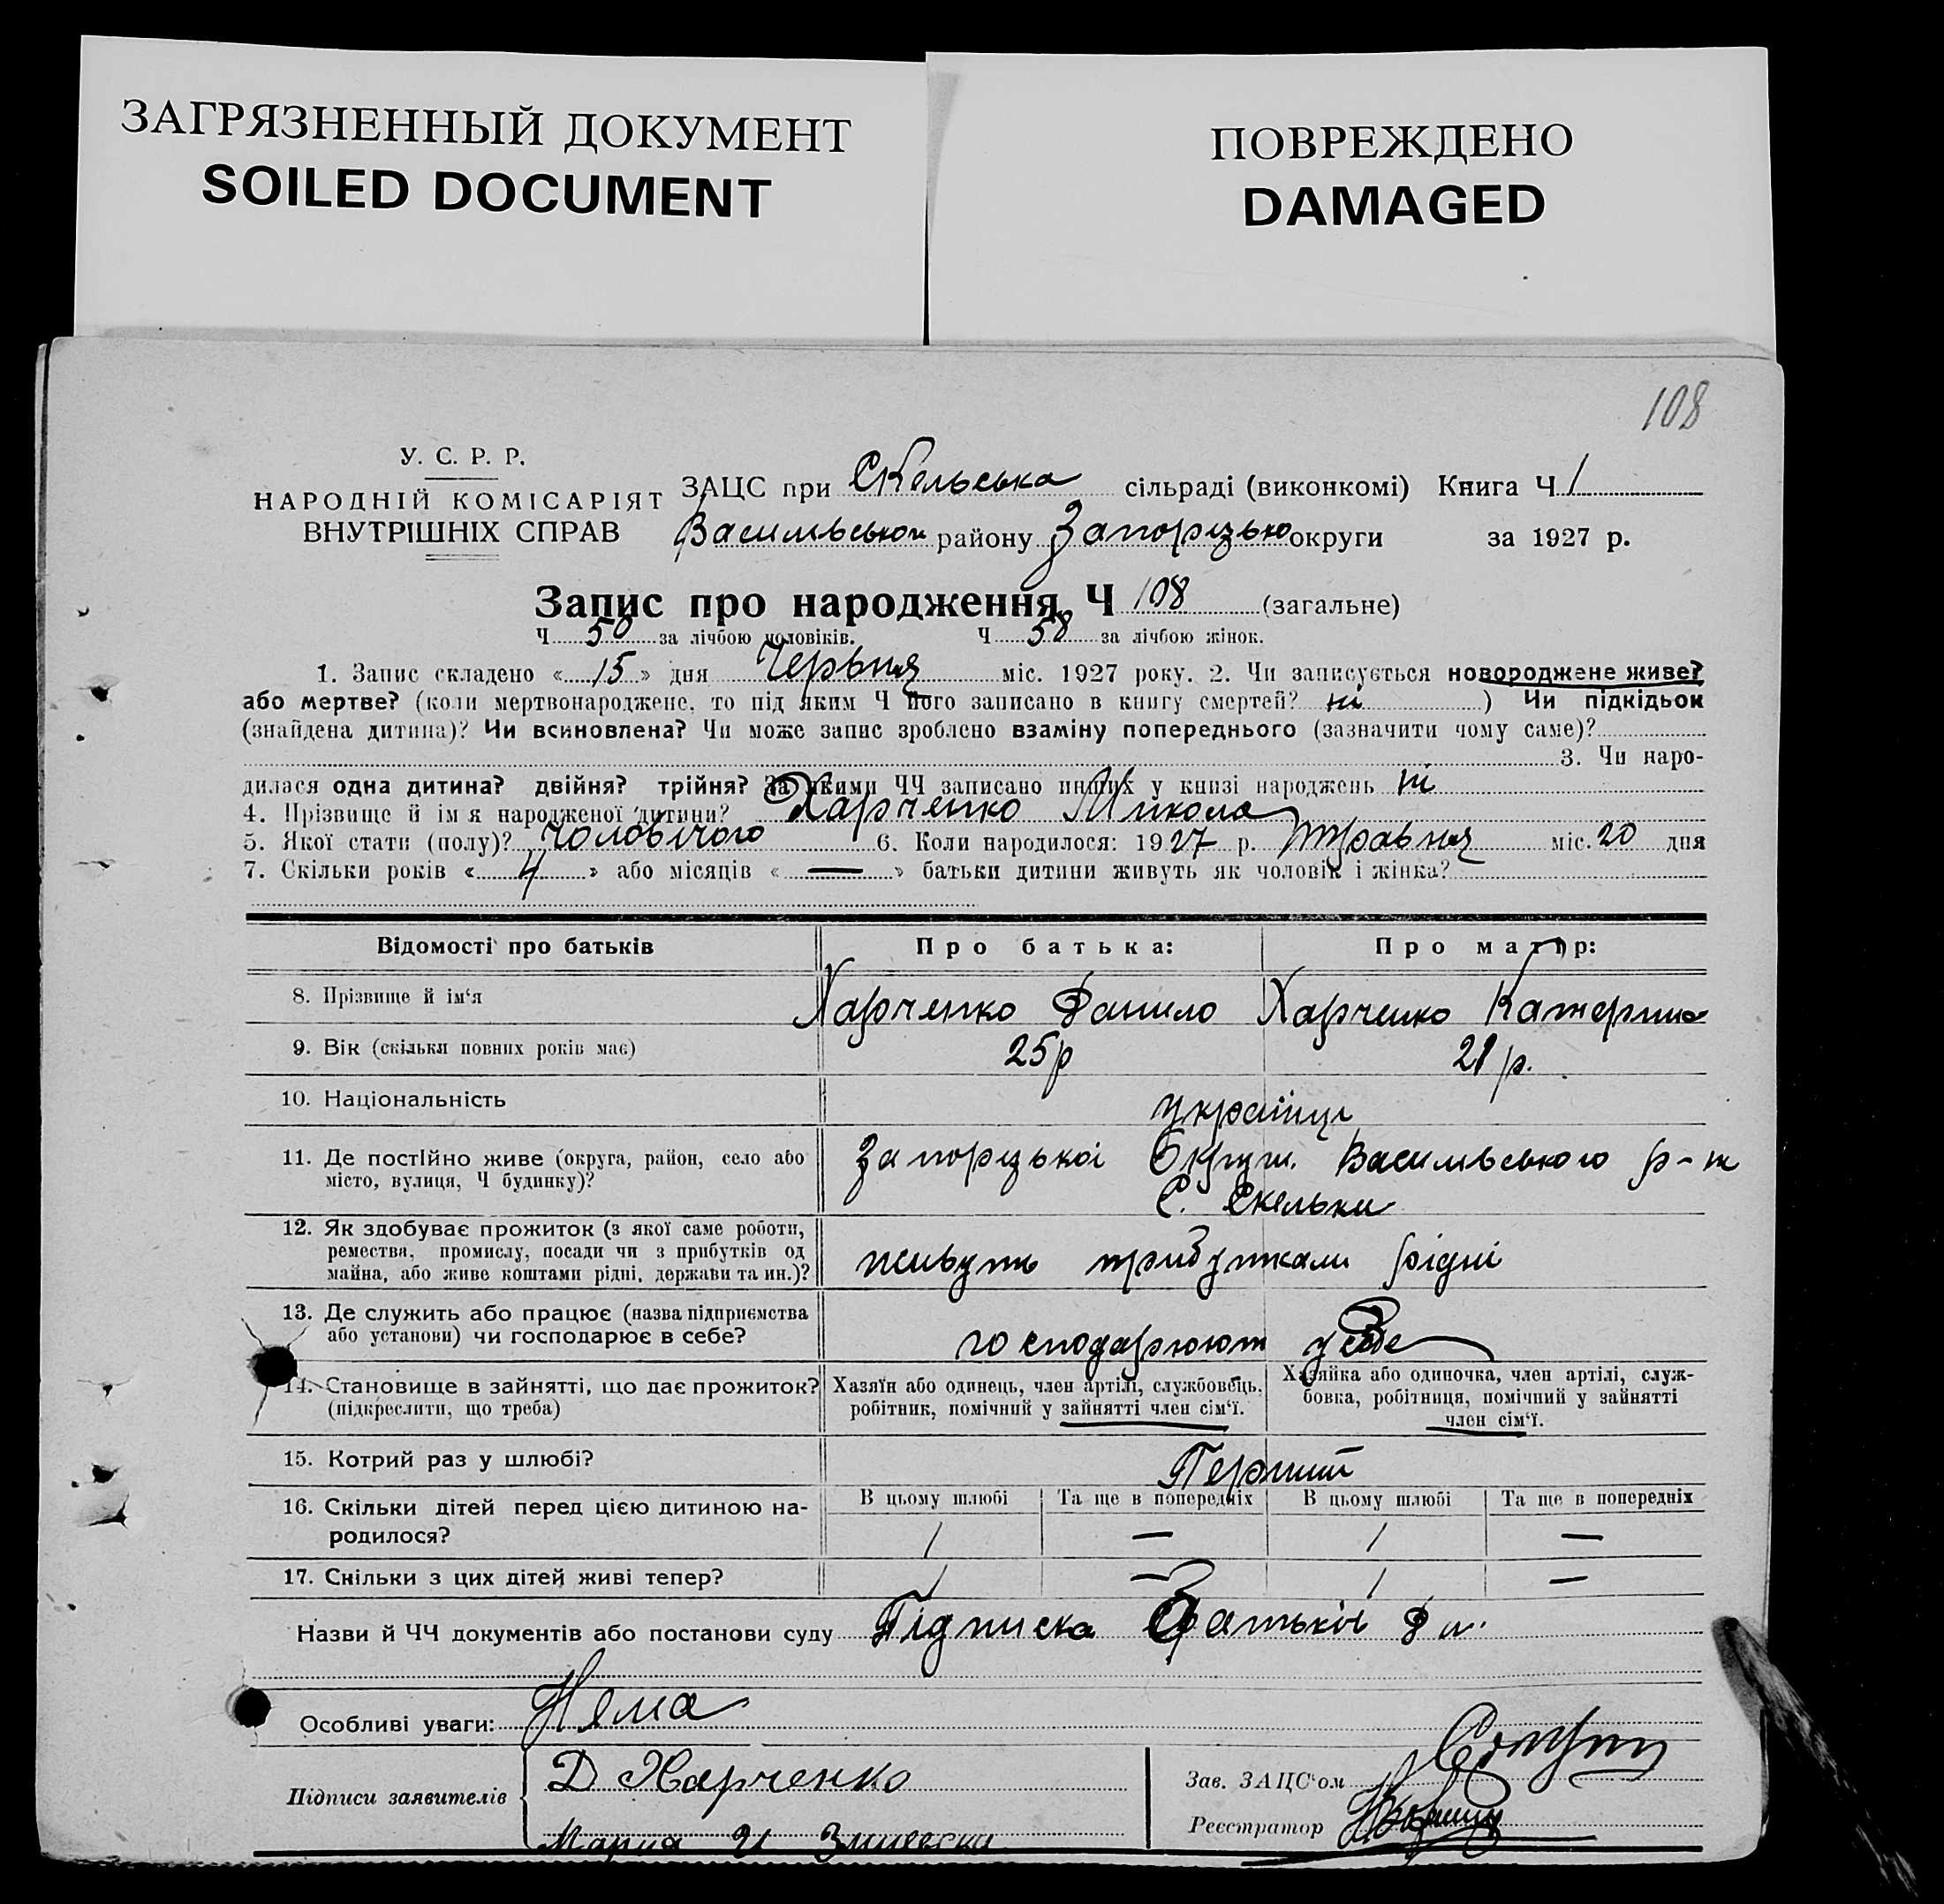 ЗАГРЯЗНЕННЫЙ ДОКУМЕНТ
SOILED DOCUMENT
ПОВРЕЖДЕНО
DAMAGED
108
У. С. Р. Р.
НАРОДНІЙ КОМІСАРІЯТ
ВНУТРІШНІХ СПРАВ
ЗАЦС при Скельська сільраді (виконкомі) Книга Ч 1
Васильського району Запорізько округи за 1927 р.
Запис про народження Ч 108 (загальне)
Ч 50 за лічбою чоловіків. Ч 58 за лічбою жінок.
1. Запис складено «15» дня Червня міс. 1927 року. 2. Чи записується новороджене живе?
або мертве? (коли мертвонароджене, то під яким Ч його записано в книгу смертей? ні ) Чи підкідьок
(знайдена дитина)? Чи всиновлена? Чи може запис зроблено взаміну попереднього (зазначити чому саме)?
3. Чи наро-
дилася одна дитина? двійня? трійня? За якими ЧЧ записано инших у книзі народжень ні
4. Прізвище й ім я народженої дитини? Харченко Микола
5. Якої стати (полу)? чоловічого 6. Коли народилося: 1927 р. травня міс. 20 дня
7. Скільки років « 4 » або місяців « — » батьки дитини живуть як чоловік і жінка?
Відомості про батьків Про батька: Про матір:
8. Прізвище й ім‘я Харченко Данило Харченко Катерина
9. Вік (скільки повних років має) 25р 21р.
10. Національність українці
11. Де постійно живе (округа, район, село або
місто, вулиця, Ч будинку)?
Запорізької Округи. Васильського р-н
С. Скельки
12. Як здобуває прожиток (з якої саме роботи,
ремества, промислу, посади чи з прибутків од
майна, або живе коштами рідні, держави та ин.)?
живуть прибутками рідні
13. Де служить або працює (назва підприємства
або установи) чи господарює в себе?
господарюют у себе
14. Становище в зайнятті, що дає прожиток?
(підкреслити, що треба)
Хазяїн або одинець, член артілі, службовець,
робітник, помічний у зайнятті член сім‘ї.
Хазяйка або одиночка, член артілі, служ-
бовка, робітниця, помічний у зайнятті
член сім‘ї.
15. Котрий раз у шлюбі? Перший
16. Скільки дітей перед цією дитиною на-
родилося?
В цьому шлюбі Та ще в попередніх В цьому шлюбі Та ще в попередніх
1 — 1 —
17. Скільки з цих дітей живі тепер? 1 — 1 —
Назви й ЧЧ документів або постанови суду Підписка Батької
Особливі уваги: Нема
Підписи заявителів
Д Харченко
Мария И
Зав. ЗАЦС‘ом
Реєстратор